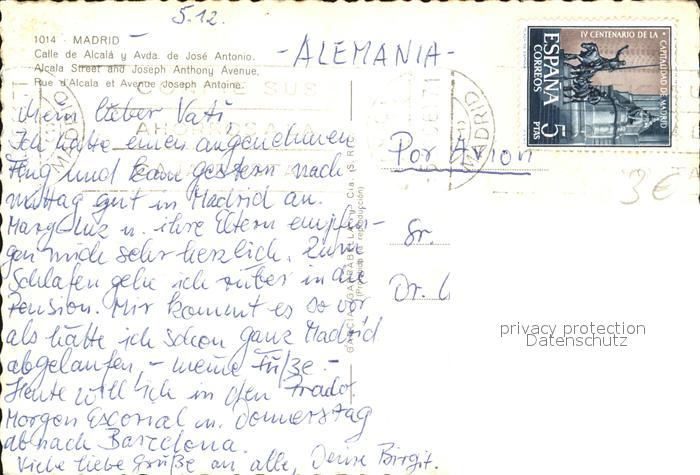 5.12.
1014 - MADRID -
Calle de Alcalá y Avda. de José Antonio.
Alcala Street and Joseph Anthony Avenue.
Rue d'Alcala et Avenue Joseph Antoine.
-ALEMANIA-
IV CENTENARIO DE LA
CAPITALIDAD DE MADRID
ESPAÑA
CORREOS
5
PTAS
MADRID
MADRID
Mein lieber Vati,
Ich hatte einen angenehmen
Flug und kam gestern nach
mittag gut in Madrid an.
Mariluz u. ihre Eltern empfin-
gen mich sehr herzlich. Zum
Schlafen gehe ich rüber in die
Pension. Mir kommt es so vor
als hätte ich schon ganz Madrid
abgelaufen, - meine Füße. -
Heute will ich in den Prado.
Morgen Escorial u. Donnerstag
ab nach Barcelona.
Viele liebe Grüße an alle, Deine Birgit.
Por Avion
Sr.
Dr.
3€
(Prohibida la reproducción)
privacy protection
Datenschutz